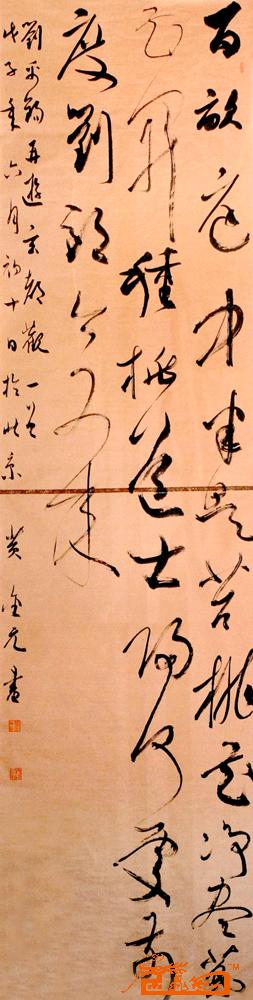 百畝庭中半是苔桃花净盡菜
花開種桃道士歸何處前
度劉郎今又来
劉禹錫再遊玄都觀一首
戊子年六月初十日於北京 黄金元書